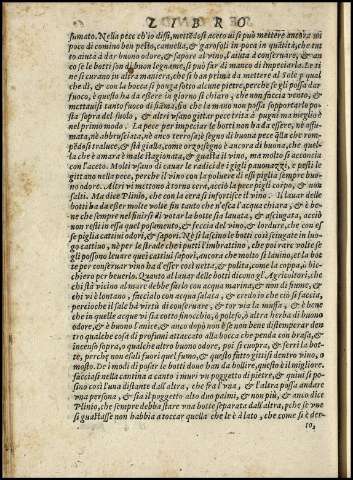 LIBRO
fumato. Nella pece ch'io dissi, mettédosi aceto ui si può mettere ancora un
poco di comino ben pesto, cannella, & garofoli in poca in quātità, che tut
to aiuta à dar buono odore, & sapore al vino, l'aiuta à conseruare, & an
co se le botti son di buon legname, si può far di manco di impeciarle. Le ti
ne si curano in altra maniera, che si han prima da mettere al Sole p qual
che dì, & con la bocca si ponga sotto alcune pietre, perche se gli possa dar
fuoco, & questo ha da essere in giorno sì chiaro, che non faccia vento, &
mettauisi tanto fuoco di fiāma, fin che la mano non possa sopportarlo po
sta sopra del suolo, & altri vsano gittar pece trita à pugni ma meglio è
nel primo modo. La pece per impeciar le botti non ha da essere, nè affu
mata, nè abbrusciata, nè anco terrosa, nè secca di buona pece q̄lla che rom
pédosi traluce, & stà gialla, come orzo. segno è ancora di buona, che quel-
la che è amara è mal stagionata, & guasta il vino, ma molto si acconcia
con l'aceto. Molti vsano di cauar le radici de i gigli pauonazzi, & pesti le
gittano nella pece, perche il vino con la poluere di essi piglia sempre buo
no odore. Altri vi mettono à torno cera, acciò la pece pigli corpo, & non
salti. Ma dice Plinio, che con la cera si infortisce il vino. Il lauar delle
botti ha da esser molte volte sin tanto che n'esca l'acqua chiara, & è be-
ne che sempre nel finirsi di votar la botte sia lauata, & asciugata, acciò
non resti in essa quel posamento, & feccia del vino & lordure, che con es
se piglia cattiui odori, & sapori. Nè si lascino le botti così scingate in luo-
go cattiuo, nè per le strade che vi putti l'imbrattino, che poi rare volte se
gli possono leuare quei cattiui sapori, ancora che molto si lauino, et la bot
te per conseruar vino ha da esser così netta, & polita, come la coppa, ò bic-
chiero per beuerlo. Quanto al lauar delle botti dicono gl'Agricoltori, che
chi stà vicino al mare debbe farlo con acqua marina, & non di fiume, &
chi vi è lontano, facciolo con acqua salata, & credo io che ciò si faccia,
percioche il sale hà virtù di conseruare, & tor via la muffa, & è bene
che in quelle acque vi sia cotto finocchio, ò poleso, ò altra herba di buono
odore, & è buono l'anice, & anco dopò non è se non bene distemperar den
tro qualche cosa di profumi attaccato alla bocca che penda con brasa, &
incenso sopra, ò qualche altro buono odore, poi si cuopra, & serri la bot-
te, perche non esali fuori quel fumo, & questo fatto gittisi dentro vino, ò
mosto. De i modi di posar le botti doue han da bollire, questo è il migliore.
facciasi nella cantina a canto i muri vn poggetto di pietre, & quiui si po-
sino così l'una distante dall'altra, che fra l'vna, & l'altra possa andare
vna persona, & sia il poggetto alto duo palmi, & non più, & anco dice
Plinio, che sempre debba stare vna botte separata dall'altra, pche se vna
si guastasse non habbia à toccar quella che le è à lato, che come si è det-
to,